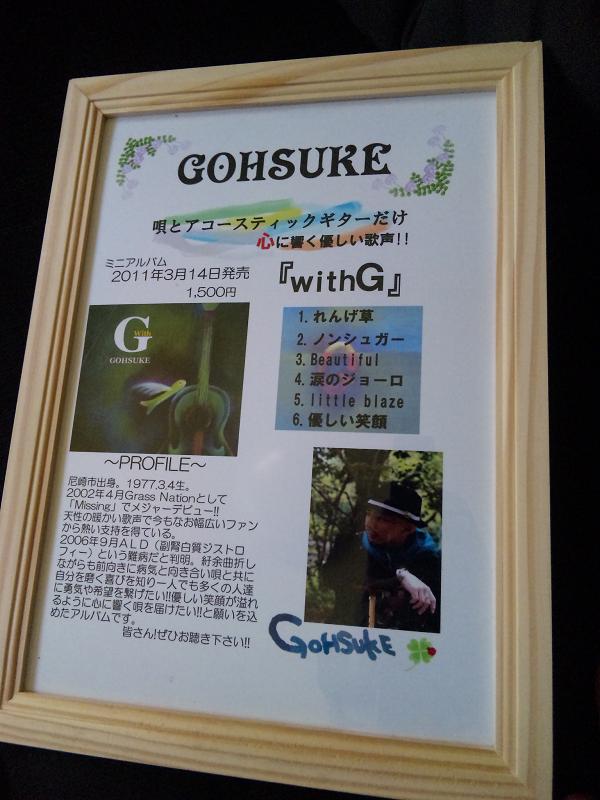 GOHSUKE
唄とアコースティックギターだけ
心に響く優しい歌声!!
ミニアルバム
2011年3月14日発売
1,500円
『withG』
G
With
GOHSUKE
1.れんげ草
2.ノンシュガー
3.Beautiful
4.涙のジョーロ
5.little blaze
6.優しい笑顔
～PROFILE～
尼崎市出身。1977,3,4生。
2002年4月Grass Nationとして
「Missing」でメジャーデビュー!!
天性の暖かい歌声で今もなお幅広いファン
から熱い支持を得ている。
2006年9月ALD（副腎白質ジストロ
フィー）という難病だと判明。紆余曲折し
ながらも前向きに病気と向き合い唄と共に
自分を磨く喜びを知り一人でも多くの人達
に勇気や希望を繋げたい!!優しい笑顔が溢れ
るように心に響く唄を届けたい!!と願いを込
めたアルバムです。
皆さん!ぜひお聴き下さい!!
GOHSUKE